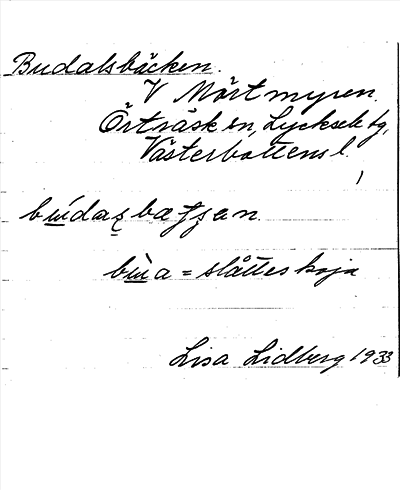 Budalsbäcken.
V Mörtmyren.
Örträsk sn, Lycksele tg,
Västerbottens l.
bu̲i̲dasbaccan
bu̲i̲a = slåtteskoja
Lisa Lidberg 1933